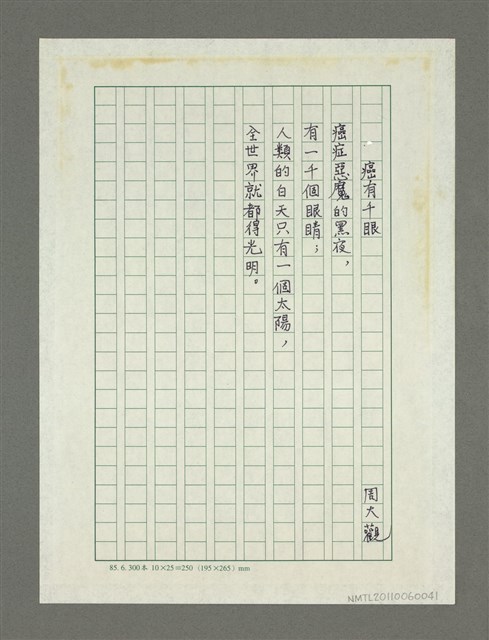 癌有千眼
周大觀
癌症惡魔的黑夜,
有一千個眼睛;
人類的白天只有一個太陽,
全世界就都得光明。
83. 6. 300本 10×25=250 (195×265) mm
NMTL20110060041